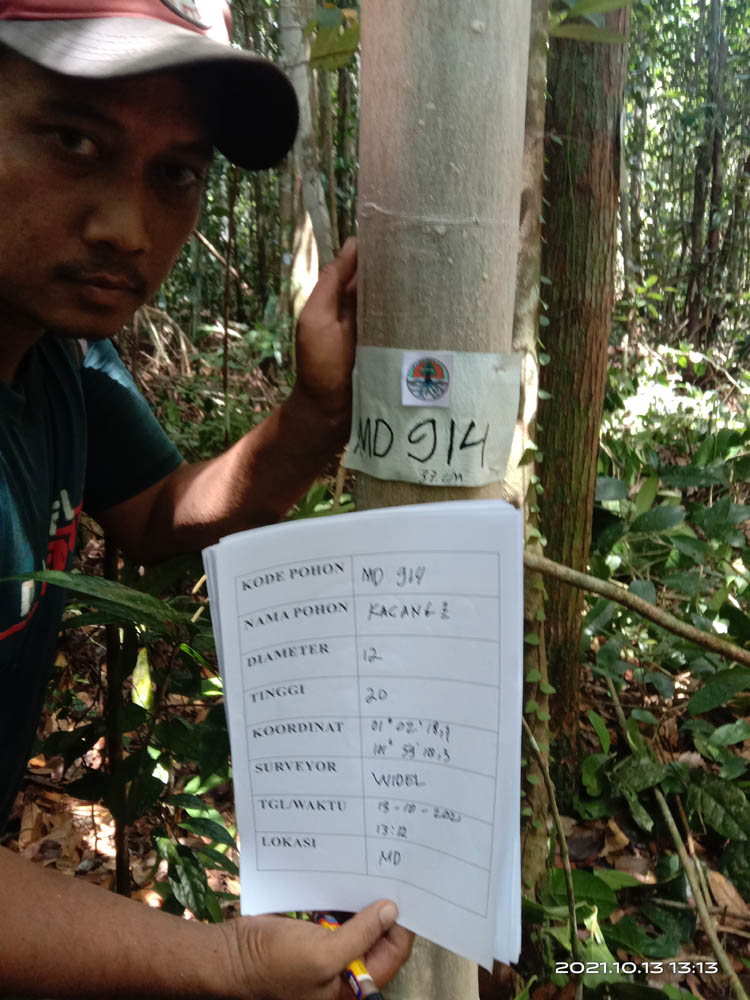 MD 914
37 cm
KODE POHON MD 914
NAMA POHON KACANG2
DIAMETER 12
TINGGI 20
KOORDINAT 01° 02' 18,9
59' 18,3
SURVEYOR WIDEL
TGL/WAKTU 13-10-2021
13:12
LOKASI MD
2021.10.13 13:13